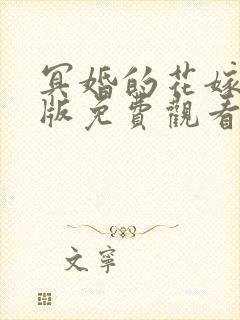 冥婚的花嫁
版免費觀看
文寧